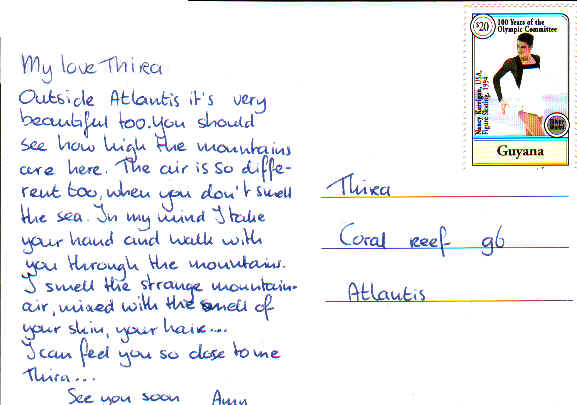 My love Thira
Outside Atlantis it's very
beautiful too. You should
see how high the mountains
are here. The air is so diffe-
rent too, when you don't smell
the sea. In my mind I take
your hand and walk with
you through the mountains.
I smell the strange mountain-
air, mixed with the smell of
your skin, your hair....
I can feel you so close to me
Thira...
See you soon Amy
$20
100 Years of the
Olympic Committee
Nancy Kerrigan, USA,
Figure Skating, 1994
Guyana
Thira
Coral reef 96
Atlantis